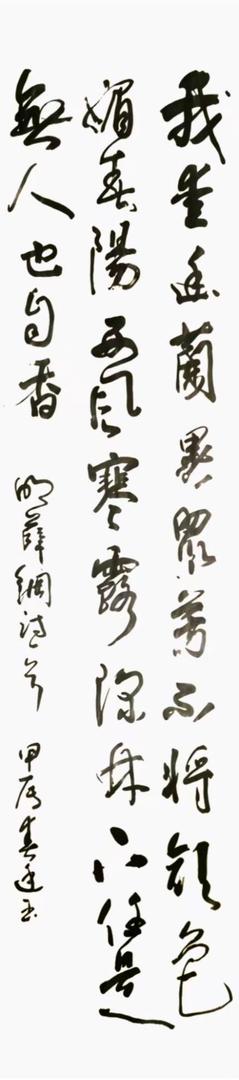 我愛幽蘭異眾芳不將顏色
媚春陽西風寒露深林下任是
無人也自香 明薛綱詩一首 甲辰春